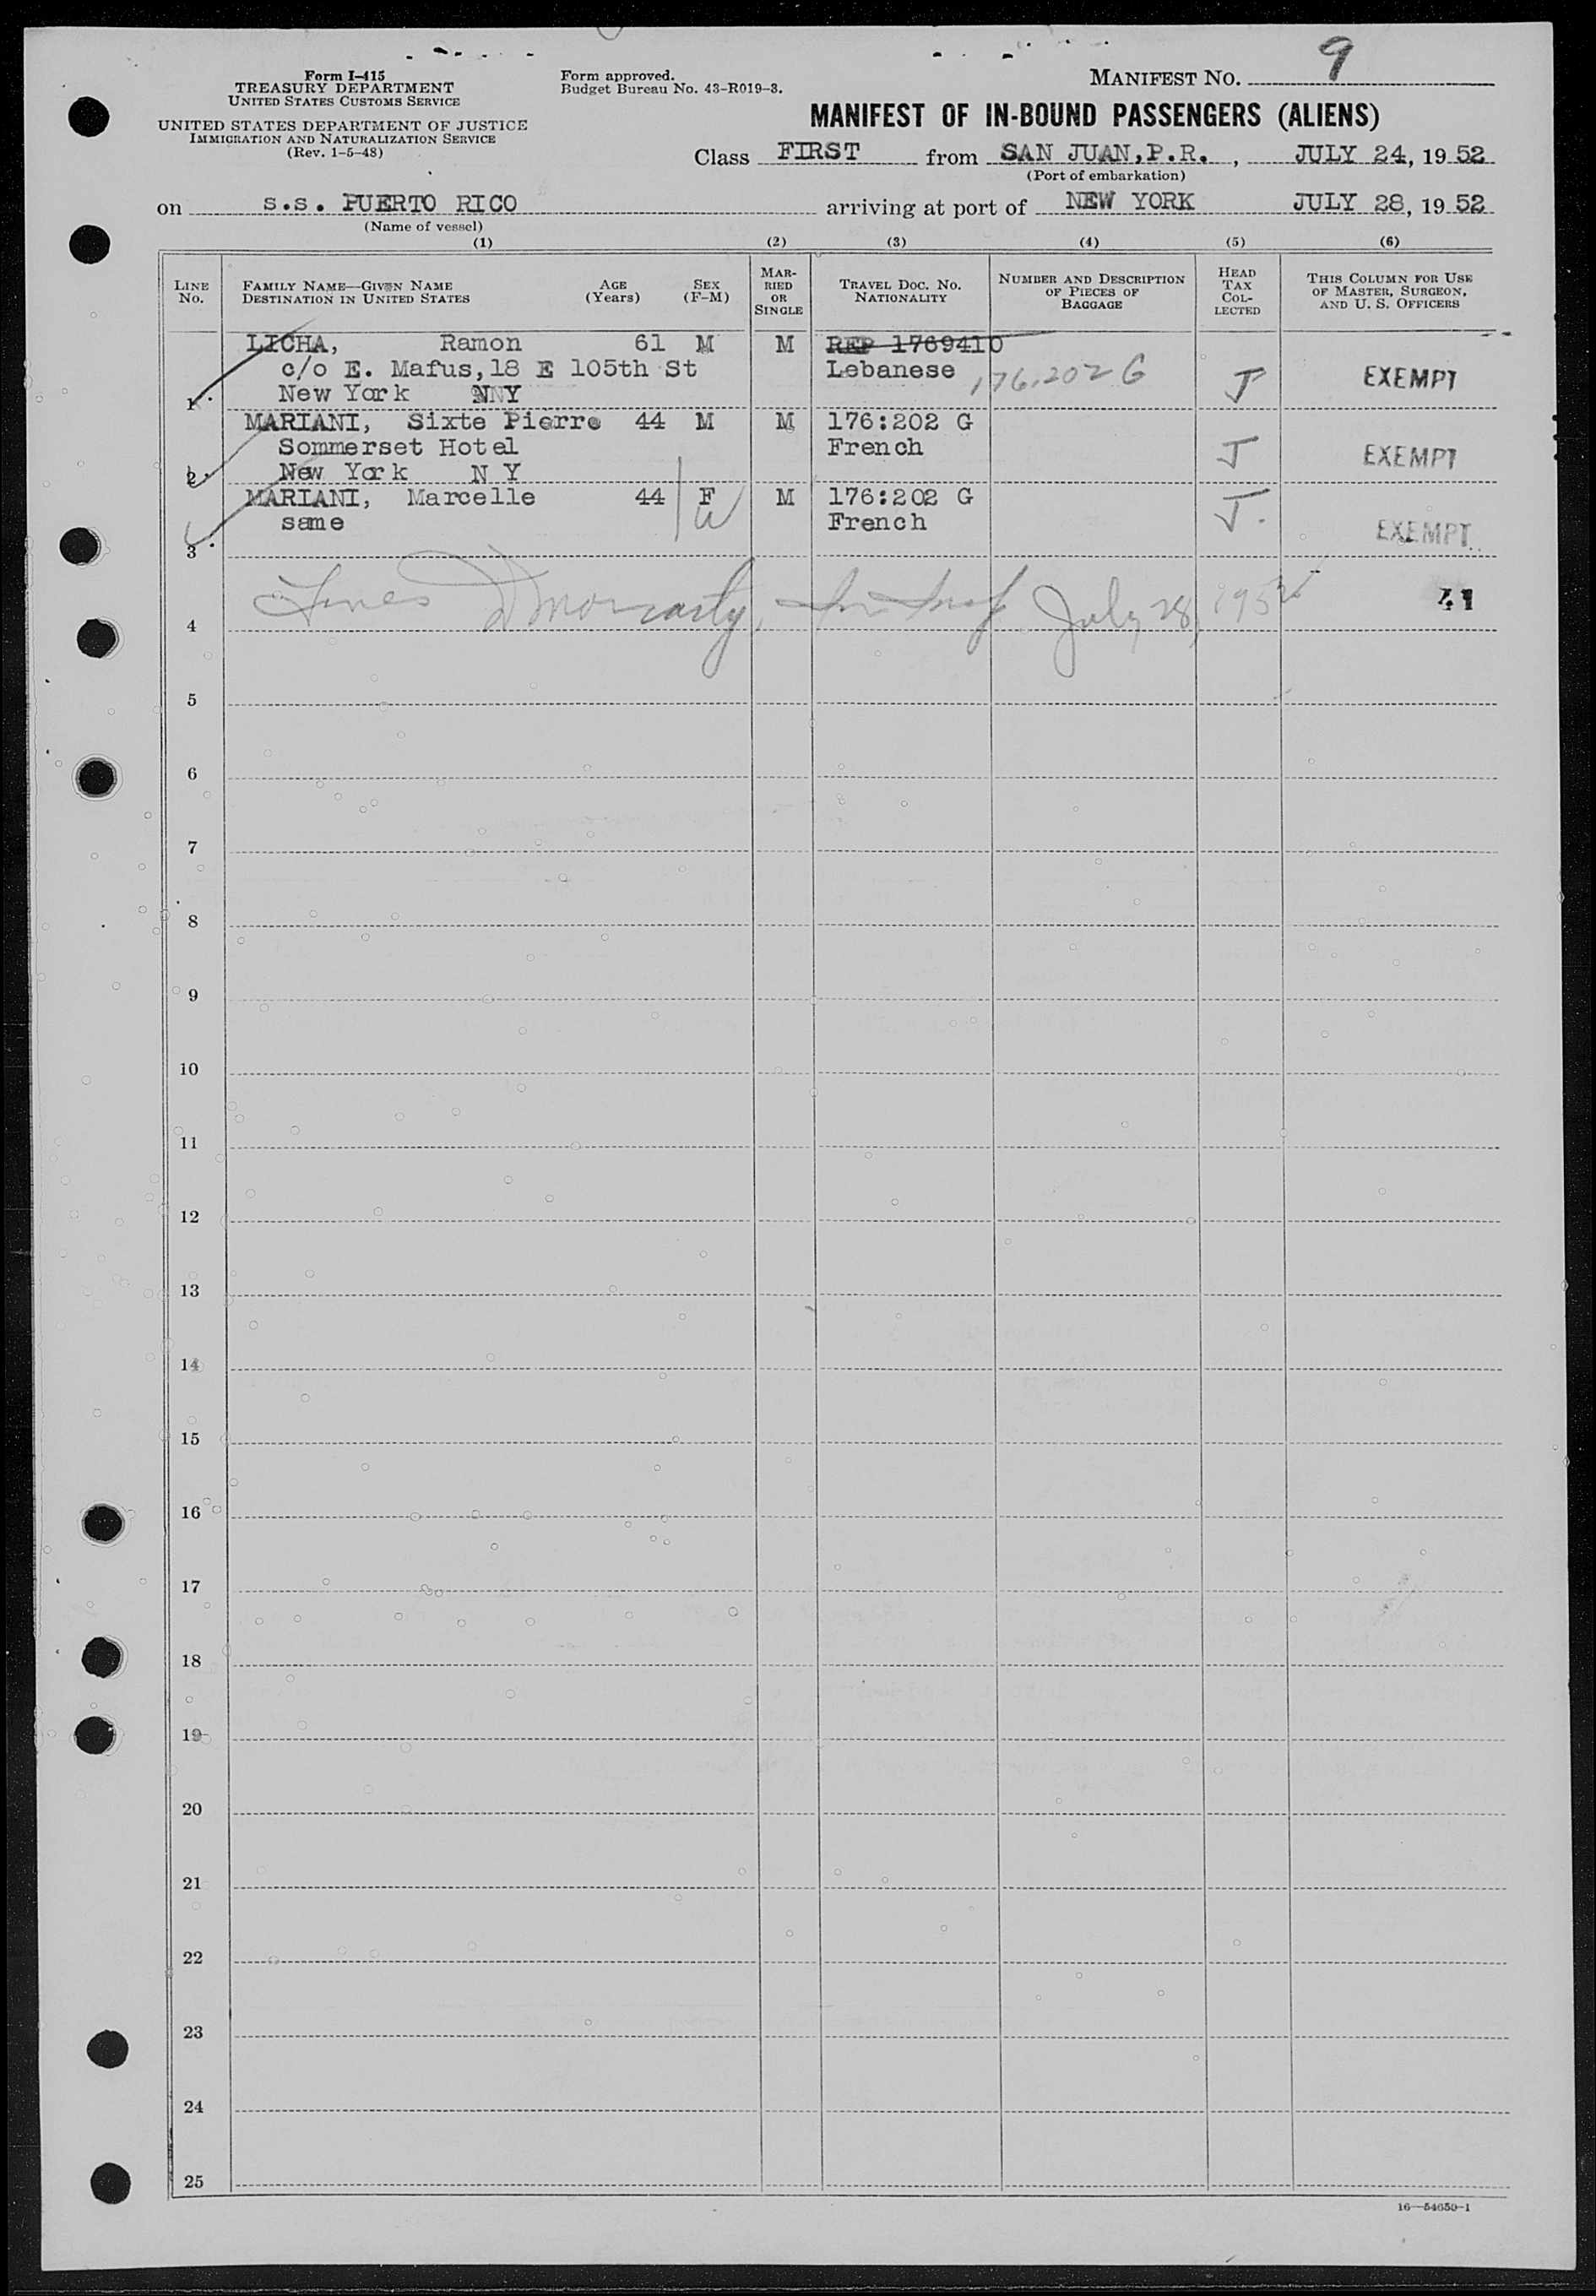 Form I-415
TREASURY DEPARTMENT
UNITED STATES CUSTOMS SERVICE
UNITED STATES DEPARTMENT OF JUSTICE
IMMIGRATION AND NATURALIZATION SERVICE
(Rev. 1-5-48)
Form approved.
Budget Bureau No. 43-R019-3.
MANIFEST NO. 9
MANIFEST OF IN-BOUND PASSENGERS (ALIENS)
Class FIRST from SAN JUAN, P.R. , JULY 24, 19 52
(Port of embarkation)
on s.s. PUERTO RICO arriving at port of NEW YORK JULY 28, 19 52
(Name of vessel)
(1) (2) (3) (4) (5) (6)
LINE NO.
FAMILY NAME—GIVEN NAME
DESTINATION IN UNITED STATES
AGE
(Years)
SEX
(F-M)
MAR-
RIED
OR
SINGLE
TRAVEL DOC. NO.
NATIONALITY
NUMBER AND DESCRIPTION
OF PIECES OF
BAGGAGE
HEAD
TAX
COL-
LECTED
THIS COLUMN FOR USE
OF MASTER, SURGEON,
AND U. S. OFFICERS
LICHA, Ramon 61 M M REP 1769410
c/o E. Mafus, 18 E 105th St Lebanese 176,202 G J EXEMPT
1 New York NNY
MARIANI, Sixte Pierre 44 M M 176:202 G
Sommerset Hotel French J EXEMPT
2 New York N Y
MARIANI, Marcelle 44 F M 176:202 G
same W French J. EXEMPT
3
4 Moriarty, July 28, 1952 41
5
6
7
8
9
10
11
12
13
14
15
16
17
18
19
20
21
22
23
24
25
16—54650-1